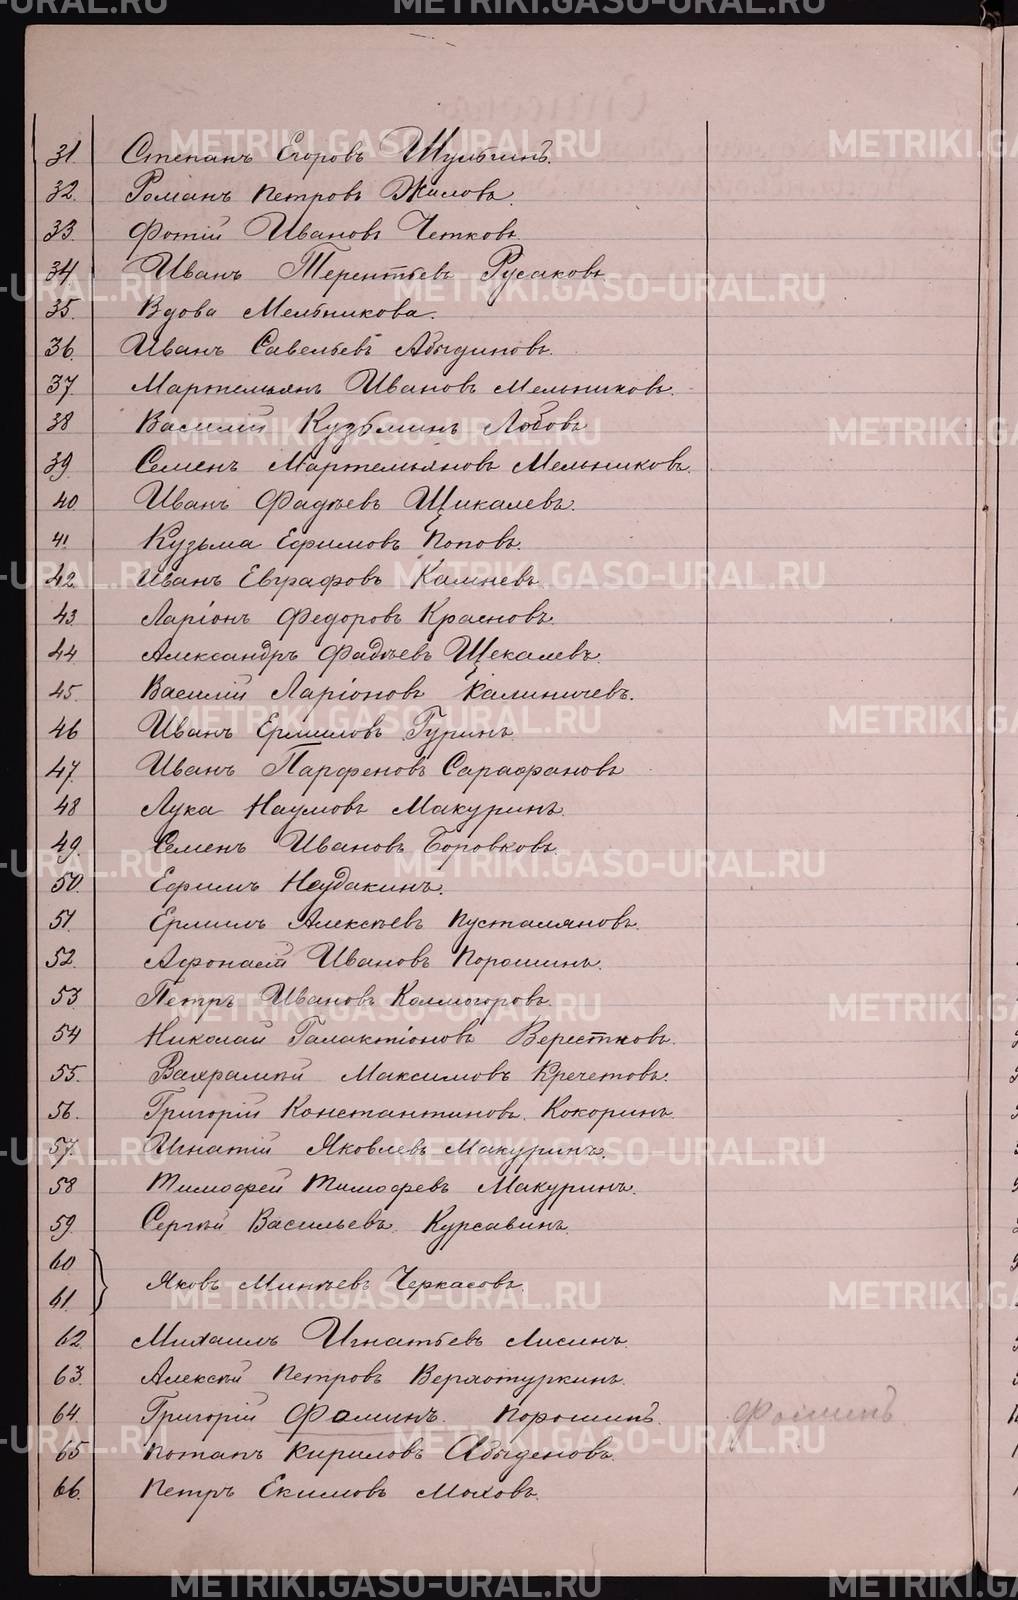 31. Степанъ Егоровъ Шульгинъ.
32. Романъ Петровъ Жиловъ.
33. Фотій Ивановъ Четковъ.
34. Иванъ Терентьевъ Русаковъ
35. Вдова Мельникова.
36. Иванъ Савельевъ Абыдиновъ.
37. Мартемьянъ Ивановъ Мельниковъ.
38 Василій Кузьминъ Лобовъ
39. Семенъ Мартемьяновъ Мельниковъ.
40 Иванъ Фадѣевъ Щикалевъ.
41. Кузьма Ефимовъ Поповъ.
42. Иванъ Евграфовъ Камневъ.
43. Ларіонъ Федоровъ Красновъ.
44 Александръ Фадѣевъ Щекалевъ.
45. Василій Ларіоновъ Калиничевъ.
46 Иванъ Ермиловъ Гуринъ.
47. Иванъ Парфеновъ Сарафановъ
48 Лука Наумовъ Макуринъ.
49. Семенъ Ивановъ Боровковъ.
50. Ефимъ Неудакинъ.
51. Ермилъ Алексѣевъ Пусталяновъ.
52. Афонасій Ивановъ Порошинъ.
53 Петръ Ивановъ Колмогоровъ.
54 Николай Галактіоновъ Верстковъ.
55. Вахрамѣй Максимовъ Кречетовъ.
56. Григорій Константиновъ Кокоринъ.
57. Игнатій Яковлевъ Макуринъ.
58 Тимофей Тимофеевъ Макуринъ.
59. Сергѣй Васильевъ Курсавинъ.
60
61. Яковъ Минѣевъ Черкасовъ.
62. Михаилъ Игнатьевъ Лисинъ.
63. Алексѣй Петровъ Верхотуркинъ.
64. Григорій Фоминъ. Порошинъ. Фоминъ
65 Потапъ Кириловъ Абыденовъ.
66. Петръ Екимовъ Моховъ.
METRIKI.GASO-URAL.RU